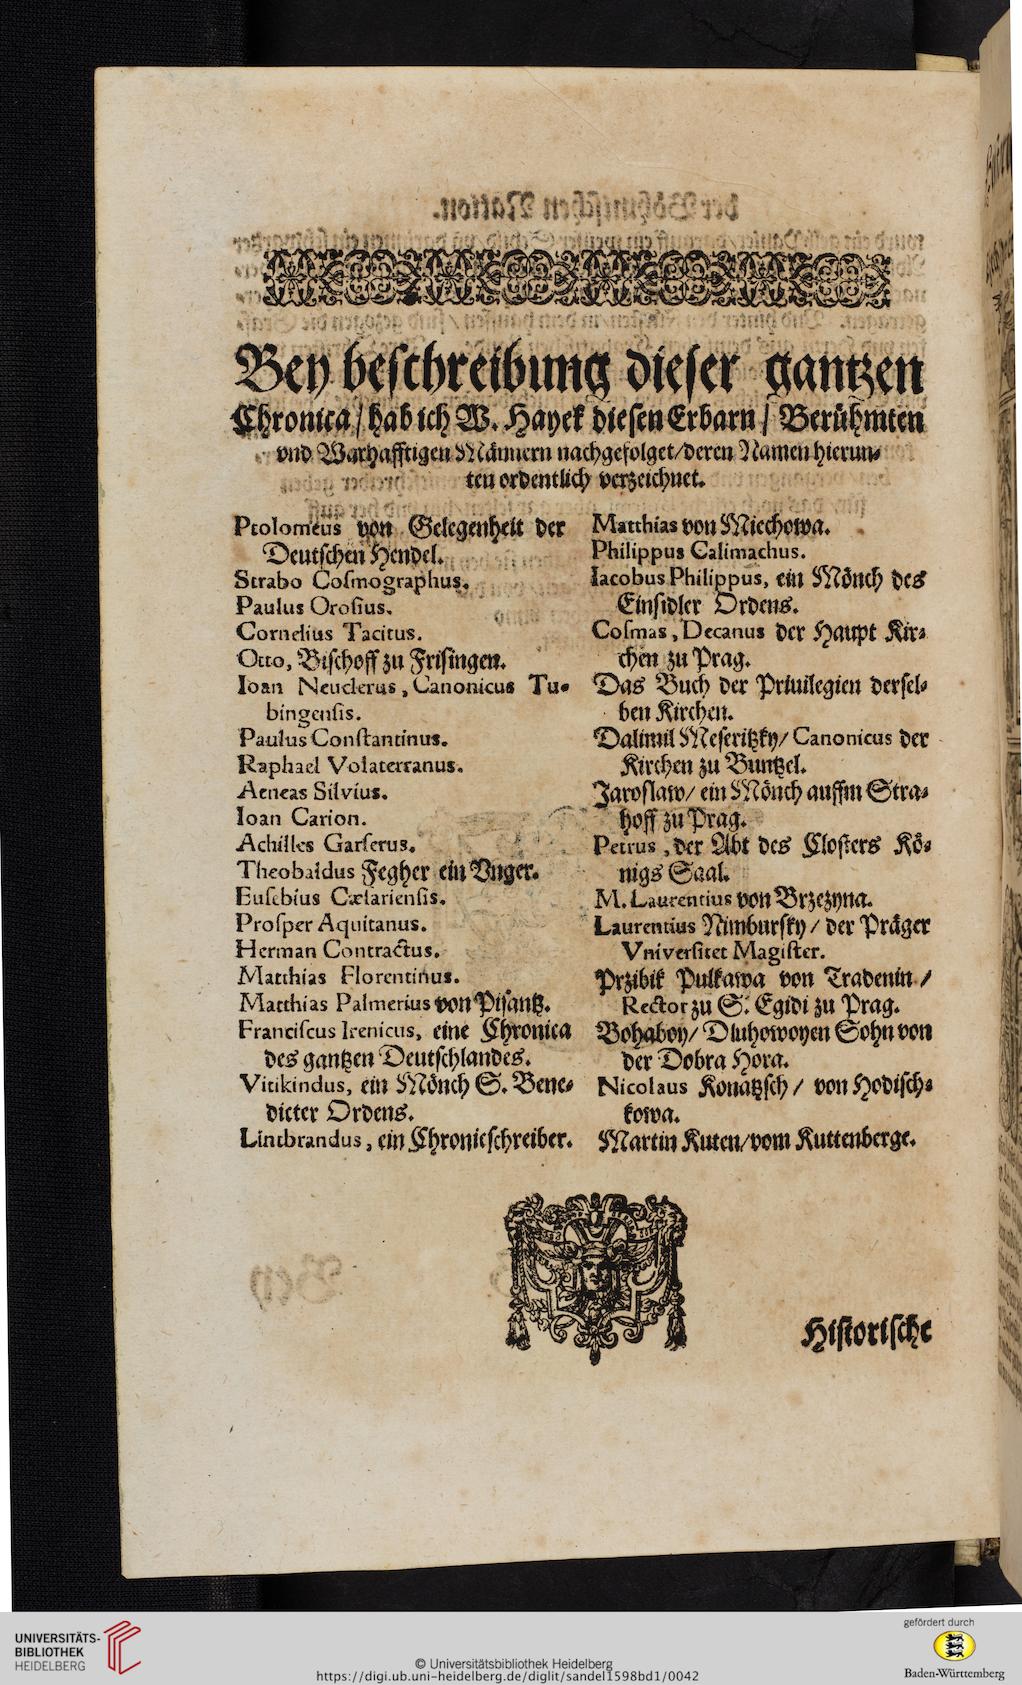 Bey beschreibung dieser gantzen
Chronica / hab ich W. Hayek diesen Erbarn / Berühmten
vnd Warhafftigen Männern nachgefolget / deren Namen hierun⸗
ten ordentlich verzeichnet.
Ptolomeus von Gelegenheit der
Deutschen Hendel.
Strabo Cosmographus.
Paulus Orosius.
Cornelius Tacitus.
Otto, Bischoff zu Frisingen.
Ioan Neuclerus, Canonicus Tu⸗
bingensis.
Paulus Constantinus.
Raphael Volaterranus.
Aeneas Silvius.
Ioan Carion.
Achilles Garserus.
Theobaldus Fegher ein Vnger.
Eusebius Cæsariensis.
Prosper Aquitanus.
Herman Contractus.
Matthias Florentinus.
Matthias Palmerius von Pisantz.
Franciscus Irenicus, eine Chronica
des gantzen Deutschlandes.
Vitikindus, ein Mönch S. Bene⸗
dicter Ordens.
Lintbrandus, ein Chronicschreiber.
Matthias von Miechowa.
Philippus Calimachus.
Iacobus Philippus, ein Mönch des
Einsidler Ordens.
Cosmas, Decanus der Haupt Kir⸗
chen zu Prag.
Das Buch der Priuilegien dersel⸗
ben Kirchen.
Dalimil Meseritzky / Canonicus der
Kirchen zu Buntzel.
Jaroslaw / ein Mönch auffm Stra⸗
hoff zu Prag.
Petrus, der Abt des Closters Kö⸗
nigs Saal.
M. Laurentius von Brzezyna.
Laurentius Nimbursky / der Präger
Vniversitet Magister.
Przibik Pulkawa von Tradenin /
Rector zu S. Egidi zu Prag.
Bohaboy / Dluhowoyen Sohn von
der Dobra Hora.
Nicolaus Konatzsch / von Hodisch⸗
kowa.
Martin Kuten / vom Kuttenberge.
Historische
UNIVERSITÄTS-
BIBLIOTHEK
HEIDELBERG
© Universitätsbibliothek Heidelberg
https://digi.ub.uni-heidelberg.de/diglit/sandel1598bd1/0042
gefördert durch
Baden-Württemberg